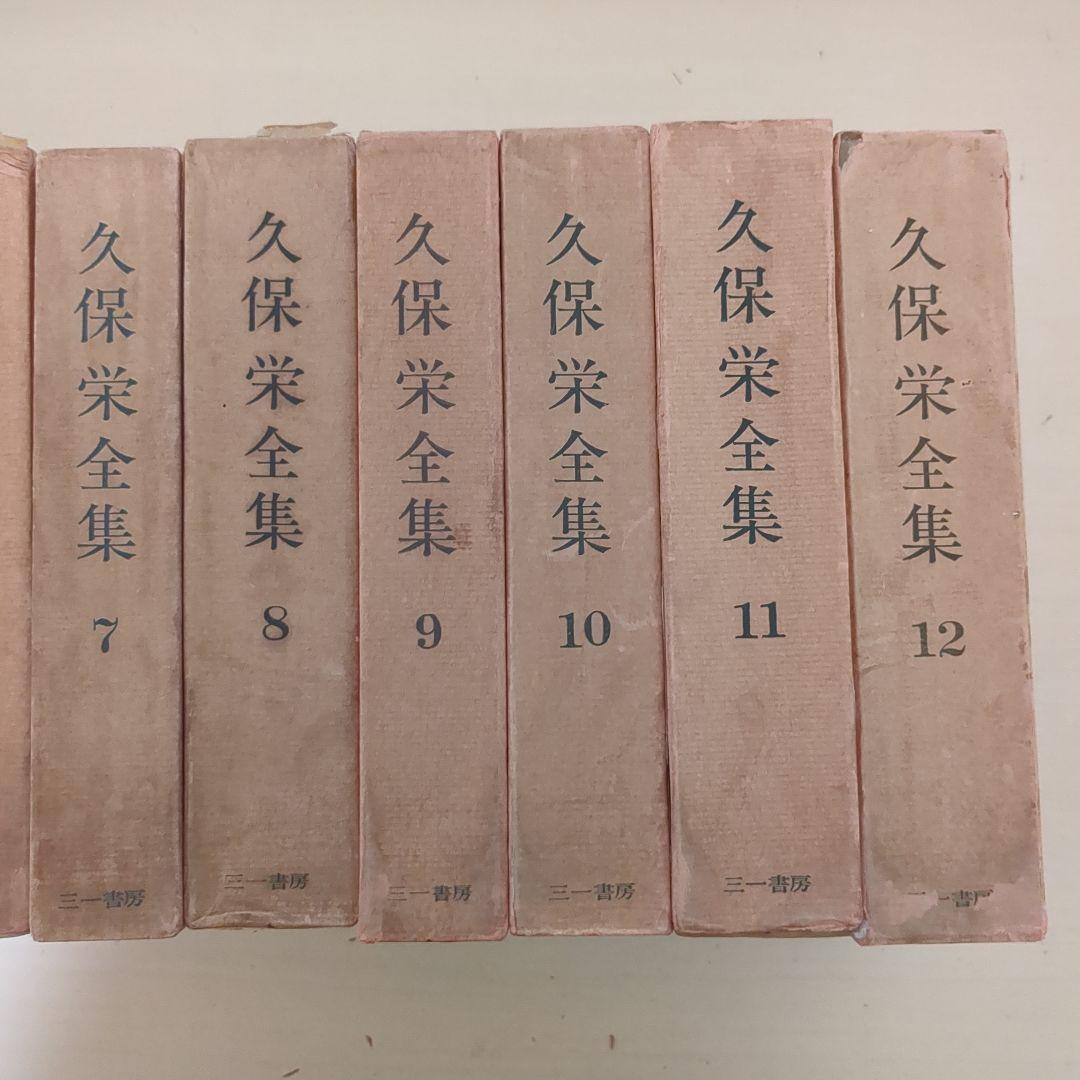 久保栄全集
7
三一書房
久保栄全集
8
三一書房
久保栄全集
9
三一書房
久保栄全集
10
三一書房
久保栄全集
11
三一書房
久保栄全集
12
一書